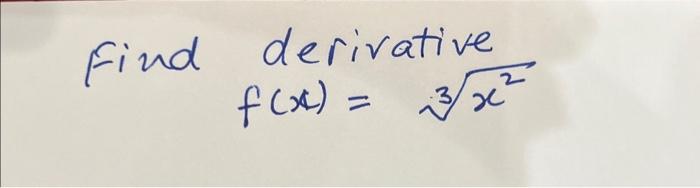 Find derivative
f(x) = ∛x²